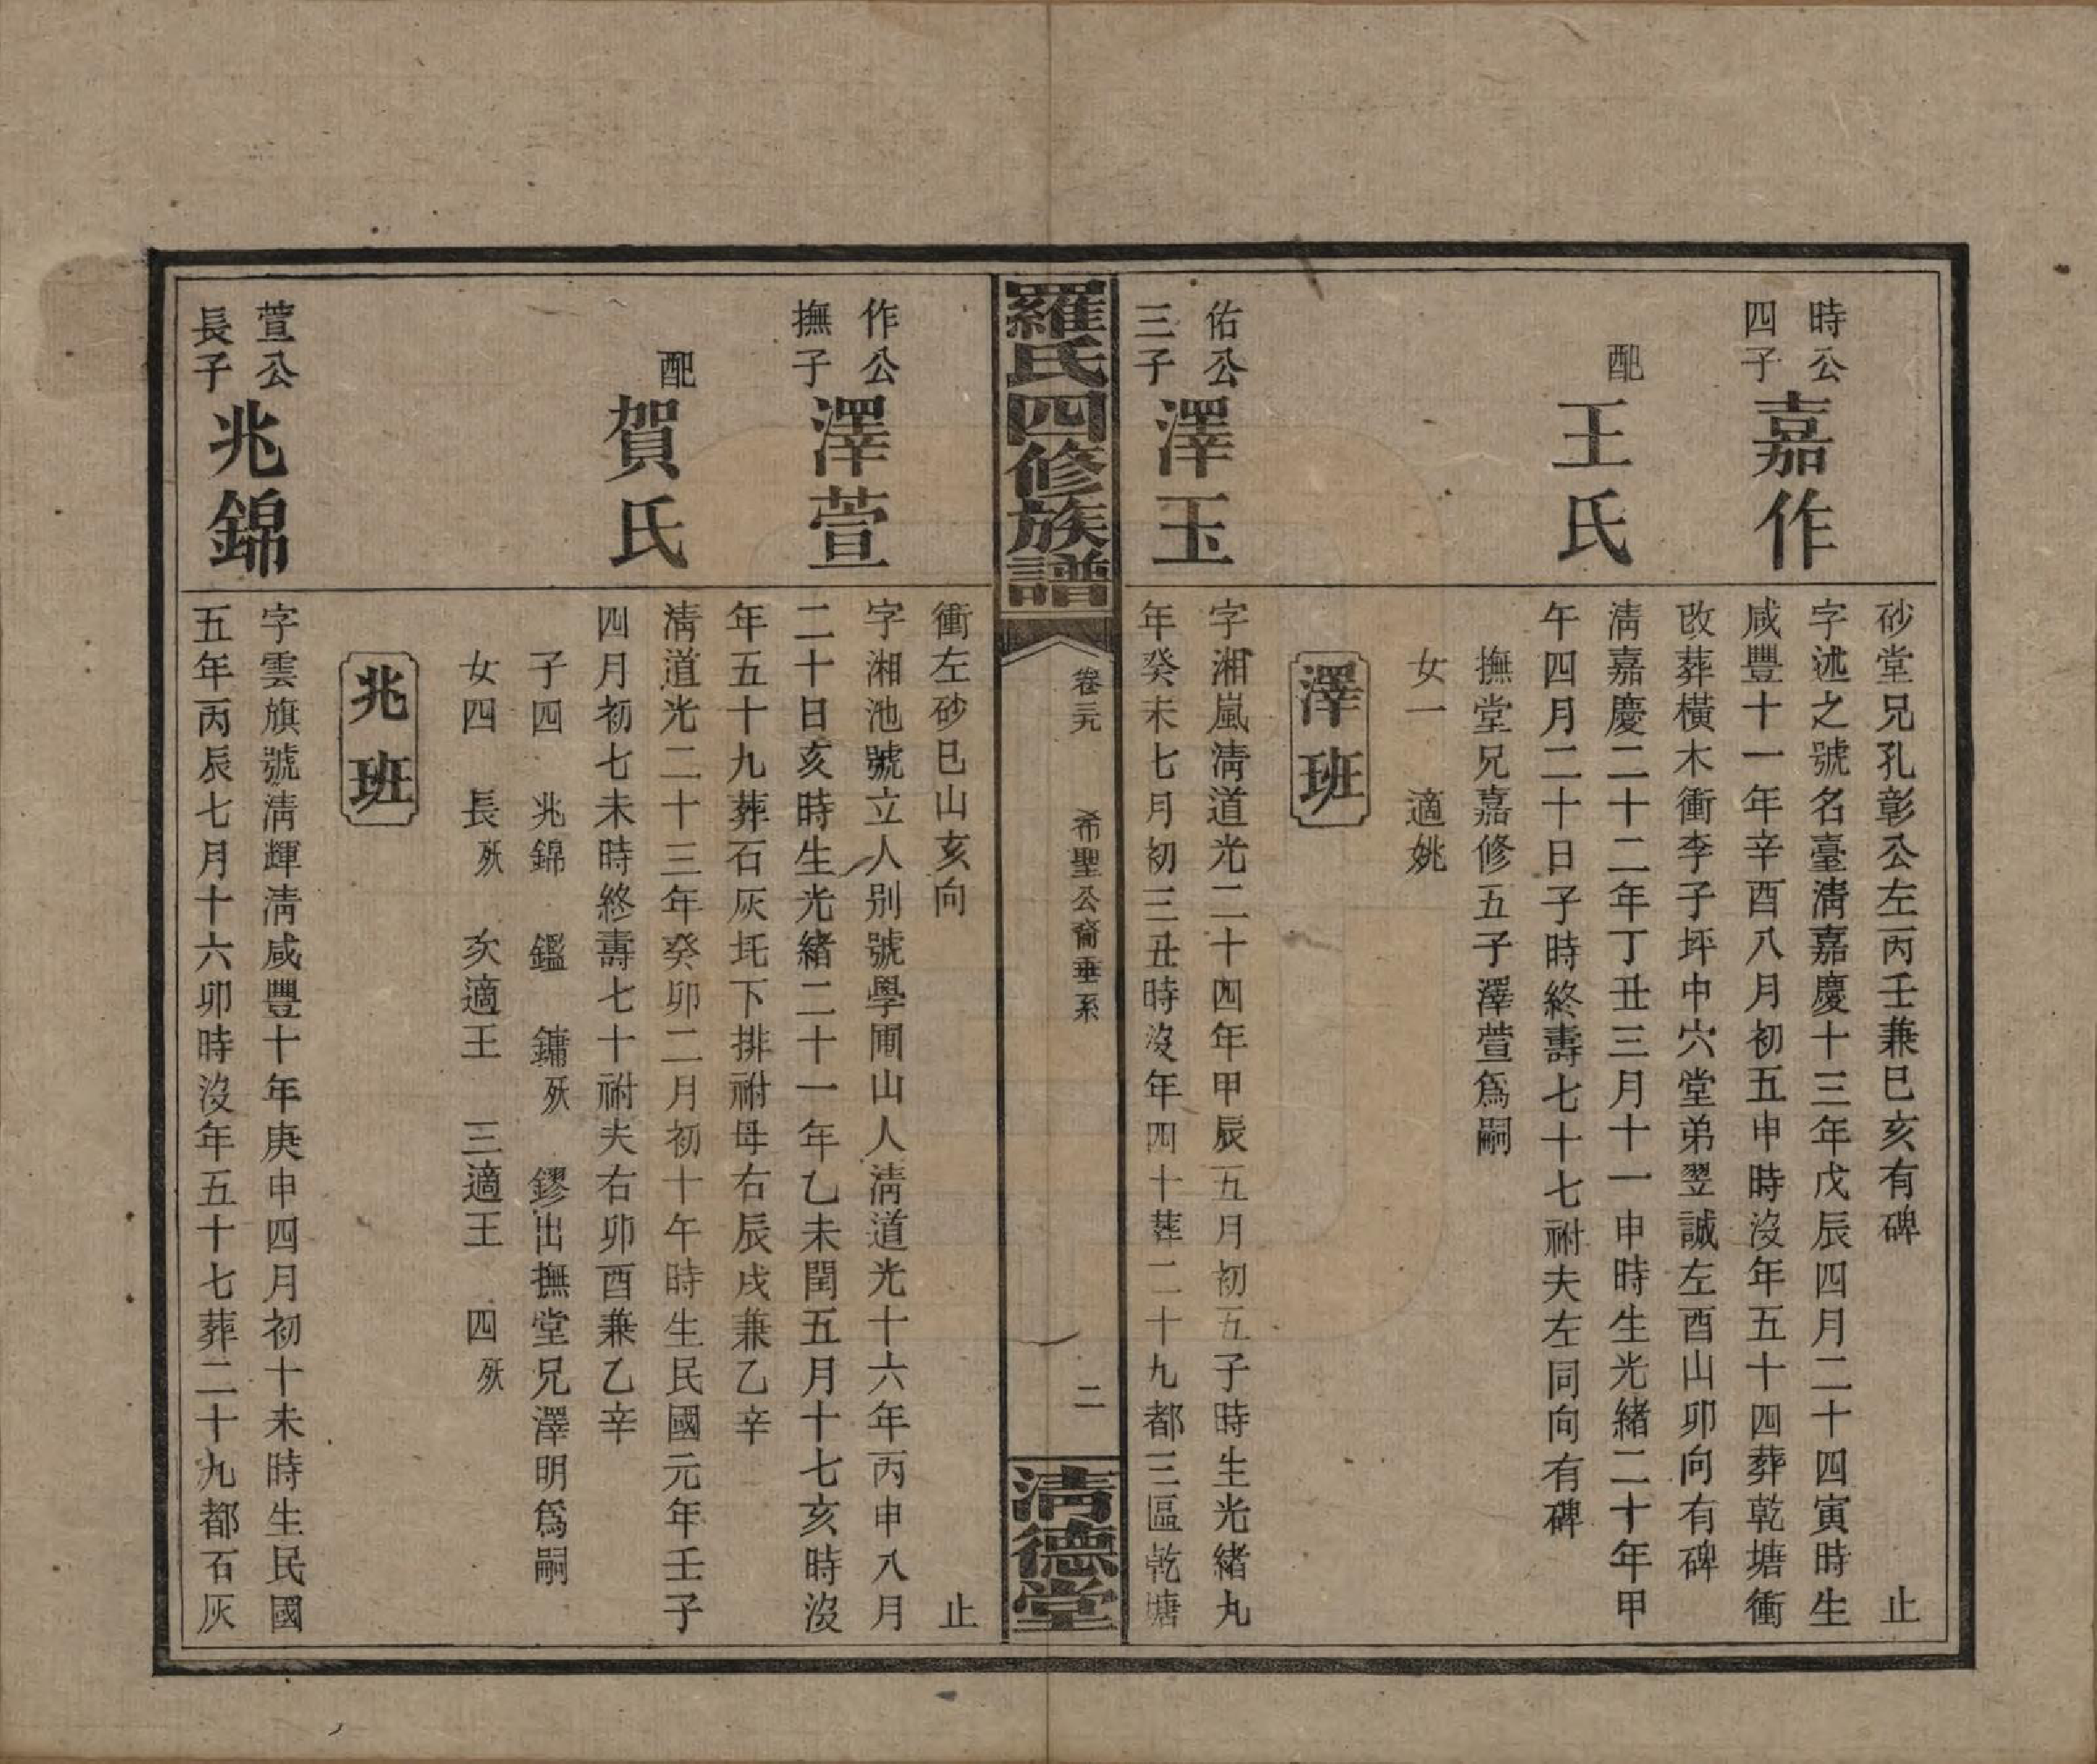 砂堂兄孔彰公左丙壬兼巳亥有碑
止
時公
四子
嘉作
字述之號名臺淸嘉慶十三年戊辰四月二十四寅時生
咸豐十一年辛酉八月初五申時沒年五十四葬乾塘衝
改葬橫木衝李子坪中穴堂弟翌誠左酉山卯向有碑
配
王氏
淸嘉慶二十二年丁丑三月十一申時生光緒二十年甲
午四月二十日子時終壽七十七祔夫左同向有碑
撫堂兄嘉修五子澤萱爲嗣
女一 適姚
澤班
佑公
三子
澤玉
字湘嵐淸道光二十四年甲辰五月初五子時生光緒九
年癸未七月初三丑時沒年四十葬二十九都三區乾塘
羅氏四修族譜
卷三九
希聖公裔垂系
二
淸德堂
衝左砂巳山亥向
止
作公
撫子
澤萱
字湘池號立人別號學圃山人淸道光十六年丙申八月
二十日亥時生光緒二十一年乙未閏五月十七亥時沒
年五十九葬石灰圫下排祔母右辰戌兼乙辛
配
賀氏
淸道光二十三年癸卯二月初十午時生民國元年壬子
四月初七未時終壽七十祔夫右卯酉兼乙辛
子四 兆錦 鑑 鏞殀 鏐出撫堂兄澤明爲嗣
女四 長殀 次適王 三適王 四殀
兆班
萱公
長子
兆錦
字雲旗號淸輝淸咸豐十年庚申四月初十未時生民國
五年丙辰七月十六卯時沒年五十七葬二十九都石灰